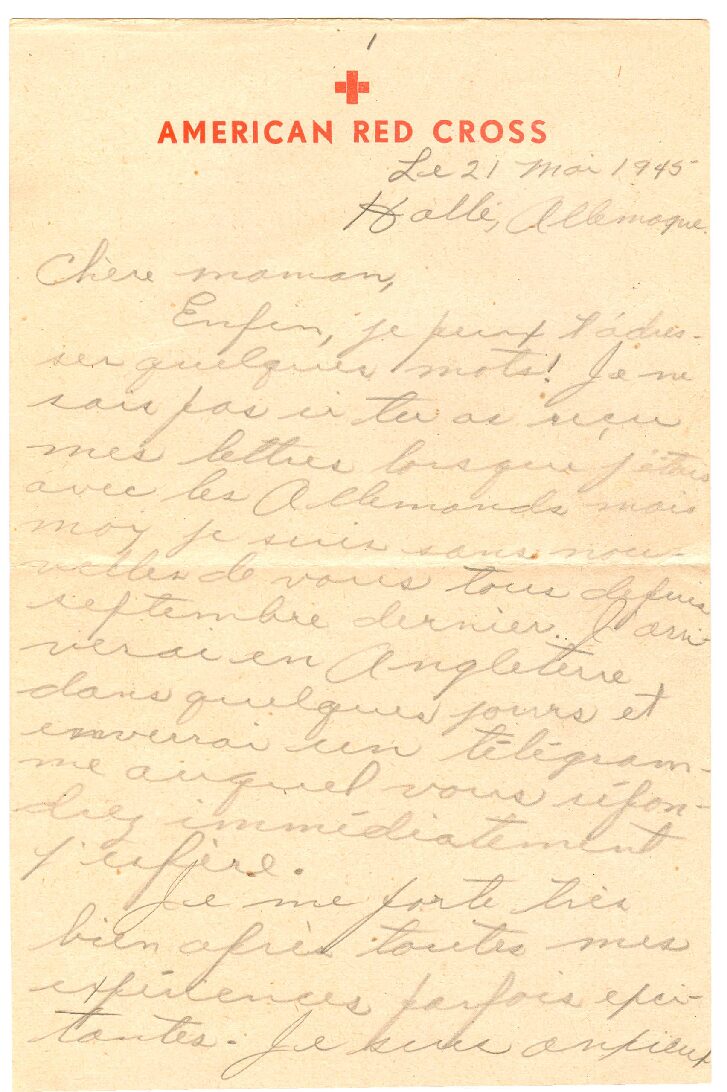 1
AMERICAN RED CROSS
Le 21 Mai 1945
Halle, Allemagne.
Chère maman,
Enfin, je peux t'adres-
ser quelques mots! Je ne
sais pas si tu as reçu
mes lettres lorsque j'étais
avec les Allemands mais
moy je suis sans nou-
velles de vous tous depuis
septembre dernier. J'arri-
verai en Angleterre
dans quelques jours et
enverrai un télégram-
me auquel vous répon-
drez immédiatement
j'espère.
Je me porte très
bien après toutes mes
expériences parfois exci-
tantes. Je suis anxieux